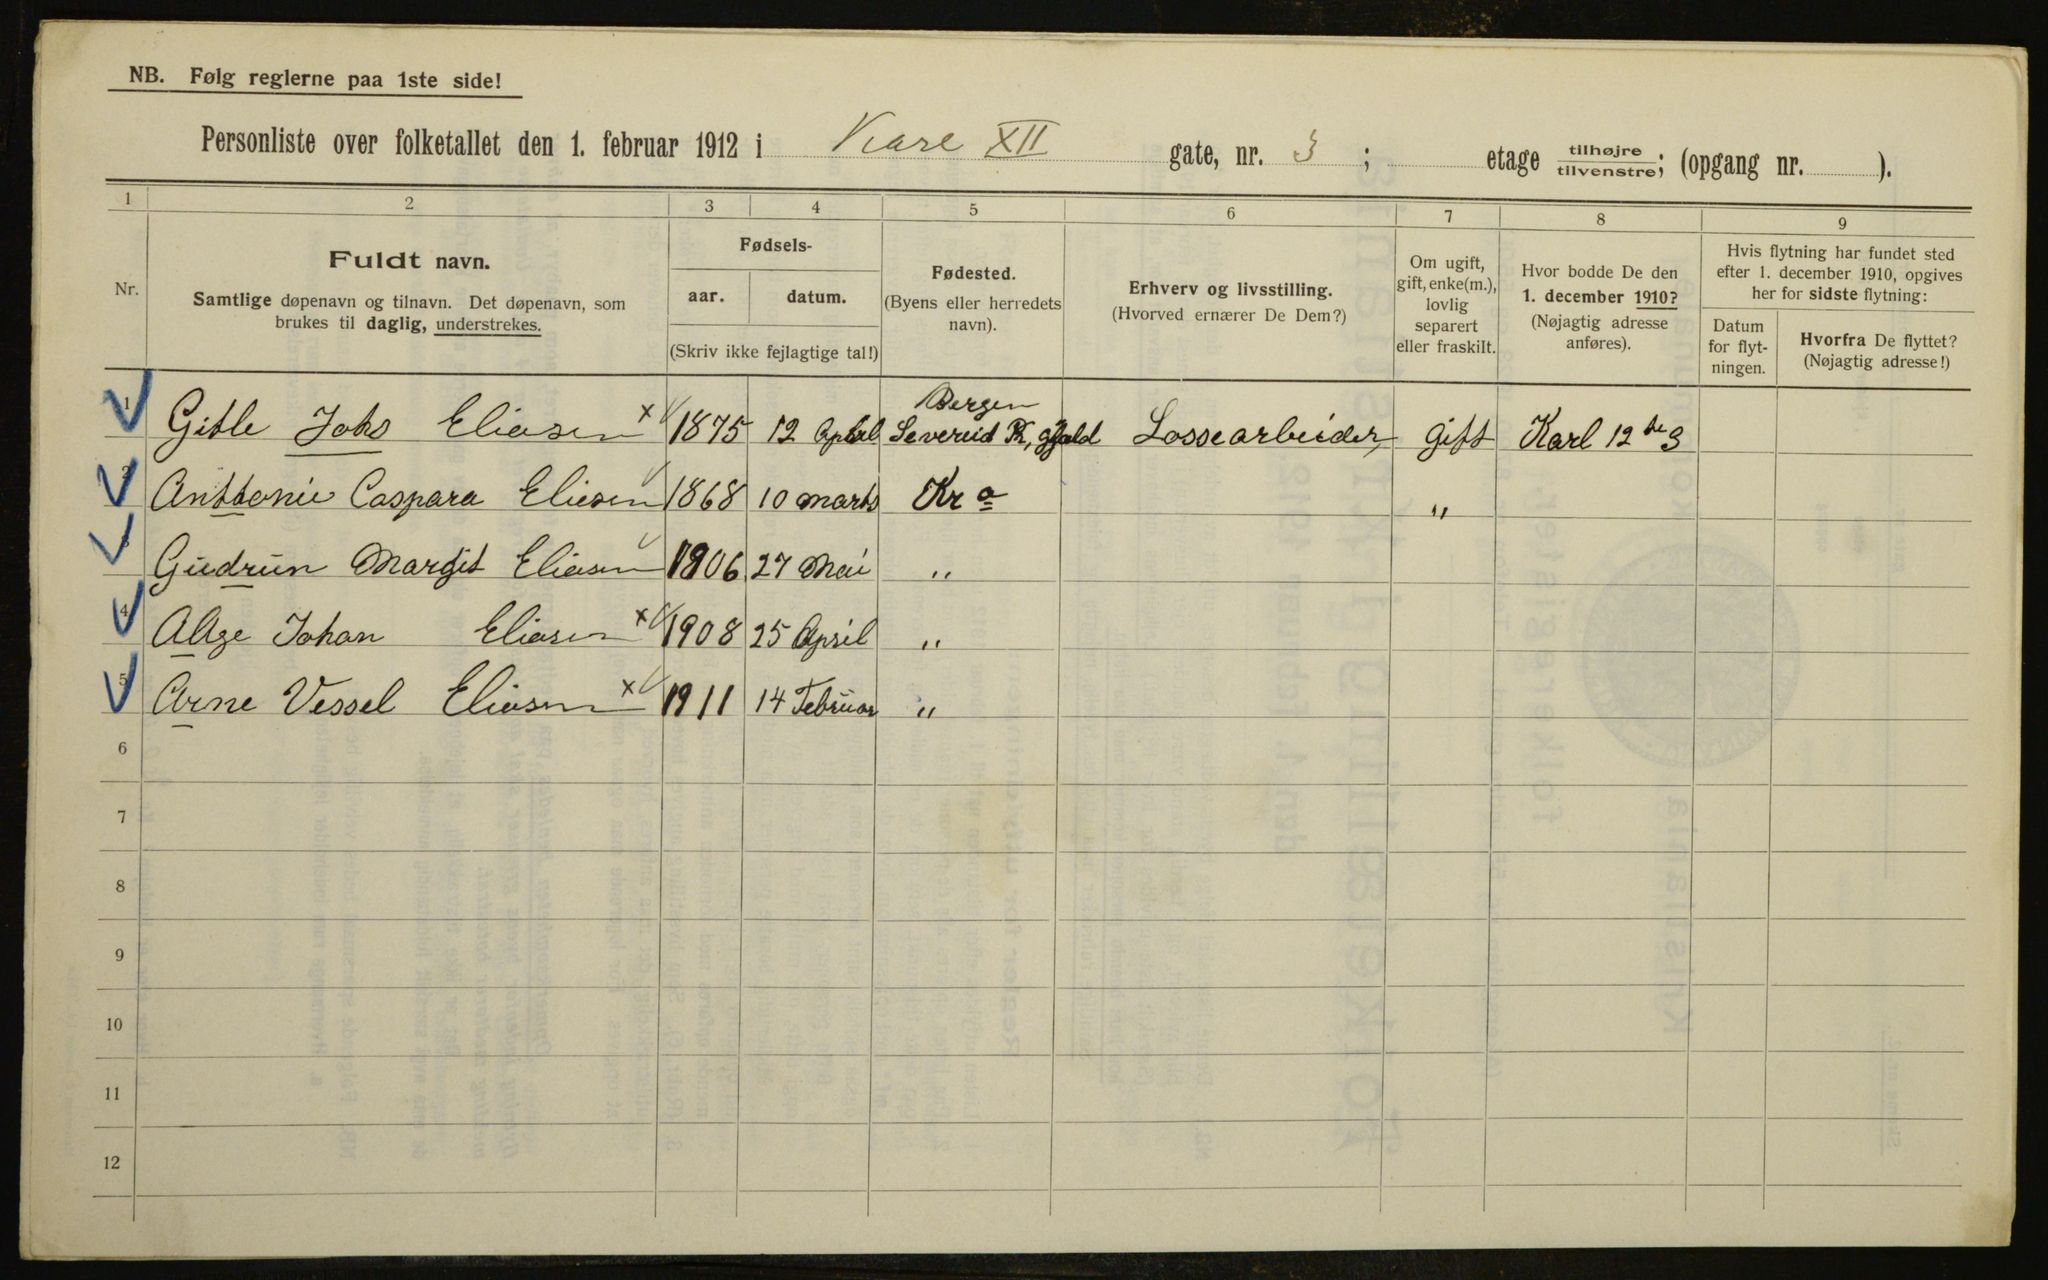 NB. Følg reglerne paa 1ste side!
Personliste over folketallet den 1. februar 1912 i Karl XII gate, nr. 3 ; etage tilhøjre/tilvenstre; (opgang nr. ).
1 2 3 4 5 6 7 8 9
Nr.
Fuldt navn.
Samtlige døpenavn og tilnavn. Det døpenavn, som
brukes til daglig, understrekes.
Fødsels-
aar. datum.
(Skriv ikke fejlagtige tal!)
Fødested.
(Byens eller herredets
navn).
Erhverv og livsstilling.
(Hvorved ernærer De Dem?)
Om ugift,
gift, enke(m.),
lovlig
separert
eller fraskilt.
Hvor bodde De den
1. december 1910?
(Nøjagtig adresse
anføres).
Hvis flytning har fundet sted
efter 1. december 1910, opgives
her for sidste flytning:
Datum
for flyt-
ningen.
Hvorfra De flyttet?
(Nøjagtig adresse!)
Bergen
1 Gitle Johs Eliasen x 1875 12 April Severeid Lossearbeider gift Karl 12 te 3
2 Anttonie Caspara Eliesen 1868 10 marts Kr a "
3 Gudrun Margit Eliasen 1906 27 Mai "
4 Alge Johan Eliasen x 1908 25 April "
5 Arne Vessel Eliasen x 1911 14 Februar "
6
7
8
9
10
11
12